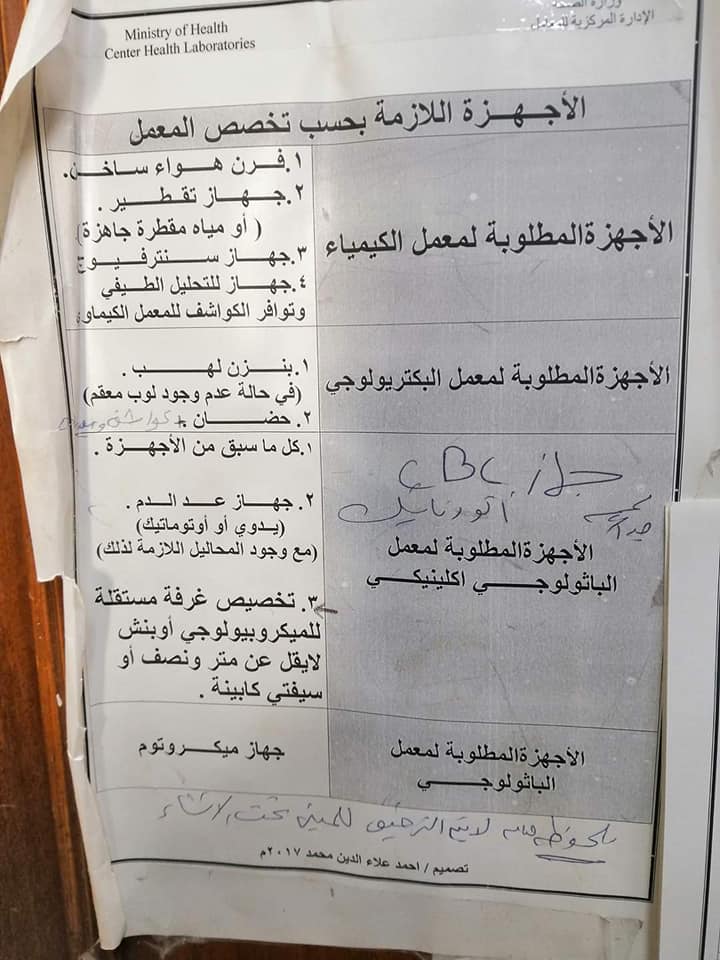 Ministry of Health
Center Health Laboratories
وزارة الصحة
الإدارة المركزية للمعامل
الأجهزة اللازمة بحسب تخصص المعمل
الأجهزة المطلوبة لمعمل الكيمياء
١. فرن هواء ساخن.
٢. جهاز تقطير .
( أو مياه مقطرة جاهزة)
٣. جهاز سنترفيوج
٤. جهاز للتحليل الطيفي
وتوافر الكواشف للمعمل الكيماوي
الأجهزة المطلوبة لمعمل البكتريولوجي
١. بنزن لهب .
(في حالة عدم وجود لوب معقم)
٢. حضان + كواشف
جهاز CBC
أتوماتيك
الأجهزة المطلوبة لمعمل
الباثولوجي اكلينيكي
١. كل ما سبق من الأجهزة .
٢. جهاز عد الدم .
(يدوي أو أوتوماتيك)
(مع وجود المحاليل اللازمة لذلك)
٣. تخصيص غرفة مستقلة
للميكروبيولوجي أو بنش
لايقل عن متر ونصف أو
سيفتي كابينة .
الأجهزة المطلوبة لمعمل
الباثولوجي
جهاز ميكروتوم
ملحوظة هامه لا يتم الترخيص للمبنى تحت الانشاء
تصميم / احمد علاء الدين محمد ٢٠١٧م